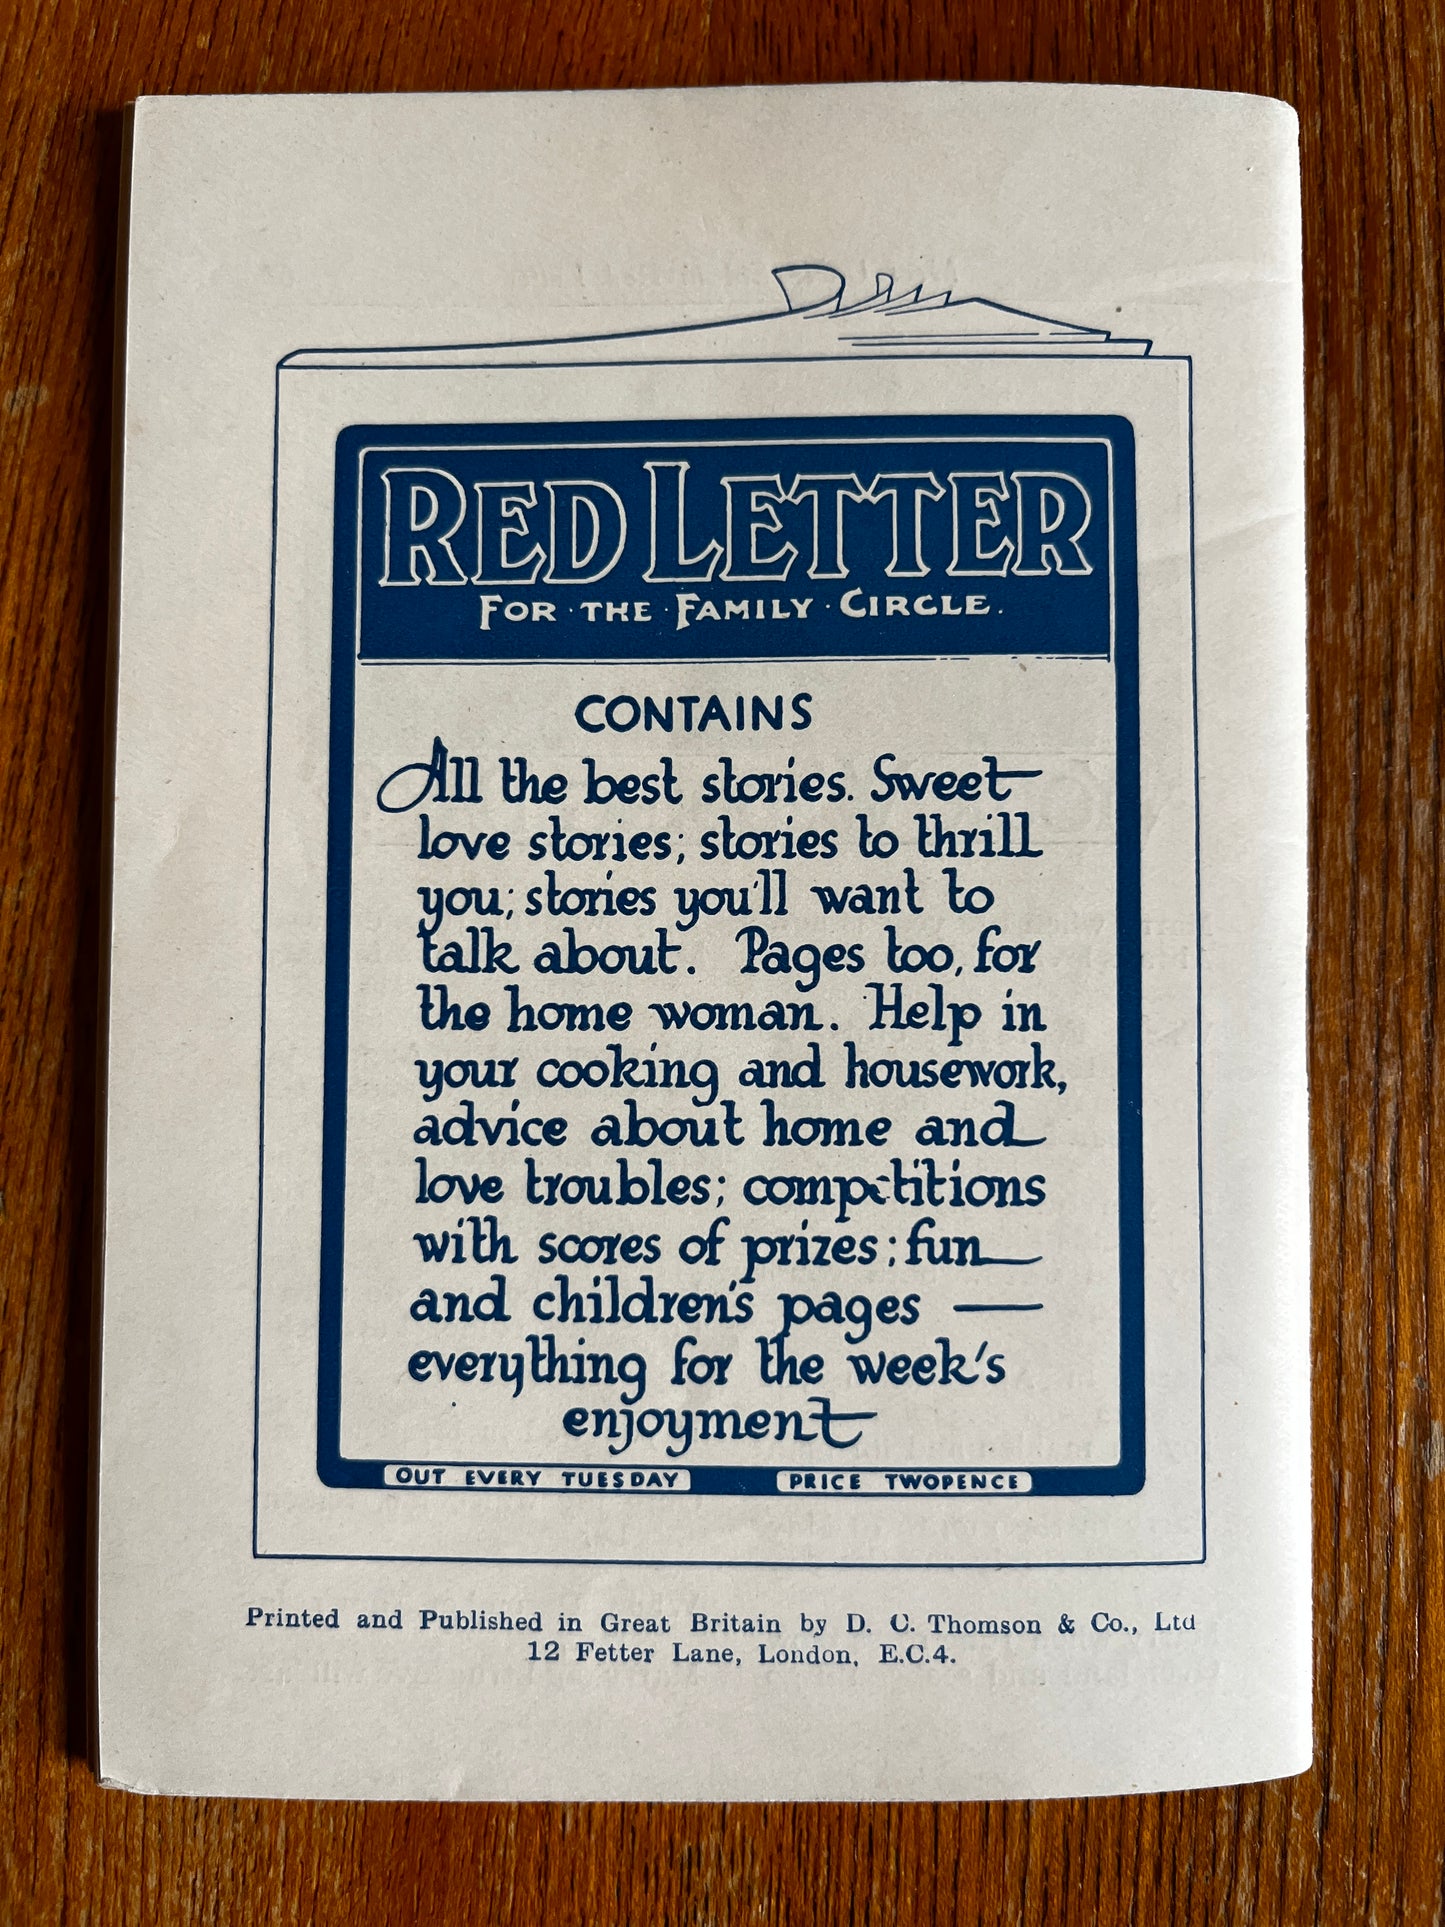 RED LETTER
FOR · THE · FAMILY · CIRCLE.
CONTAINS
All the best stories. Sweet
love stories; stories to thrill
you; stories you'll want to
talk about. Pages too, for
the home woman. Help in
your cooking and housework,
advice about home and
love troubles; competitions
with scores of prizes; fun
and children's pages —
everything for the week's
enjoyment
OUT EVERY TUESDAY PRICE TWOPENCE
Printed and Published in Great Britain by D. C. Thomson & Co., Ltd
12 Fetter Lane, London, E.C.4.